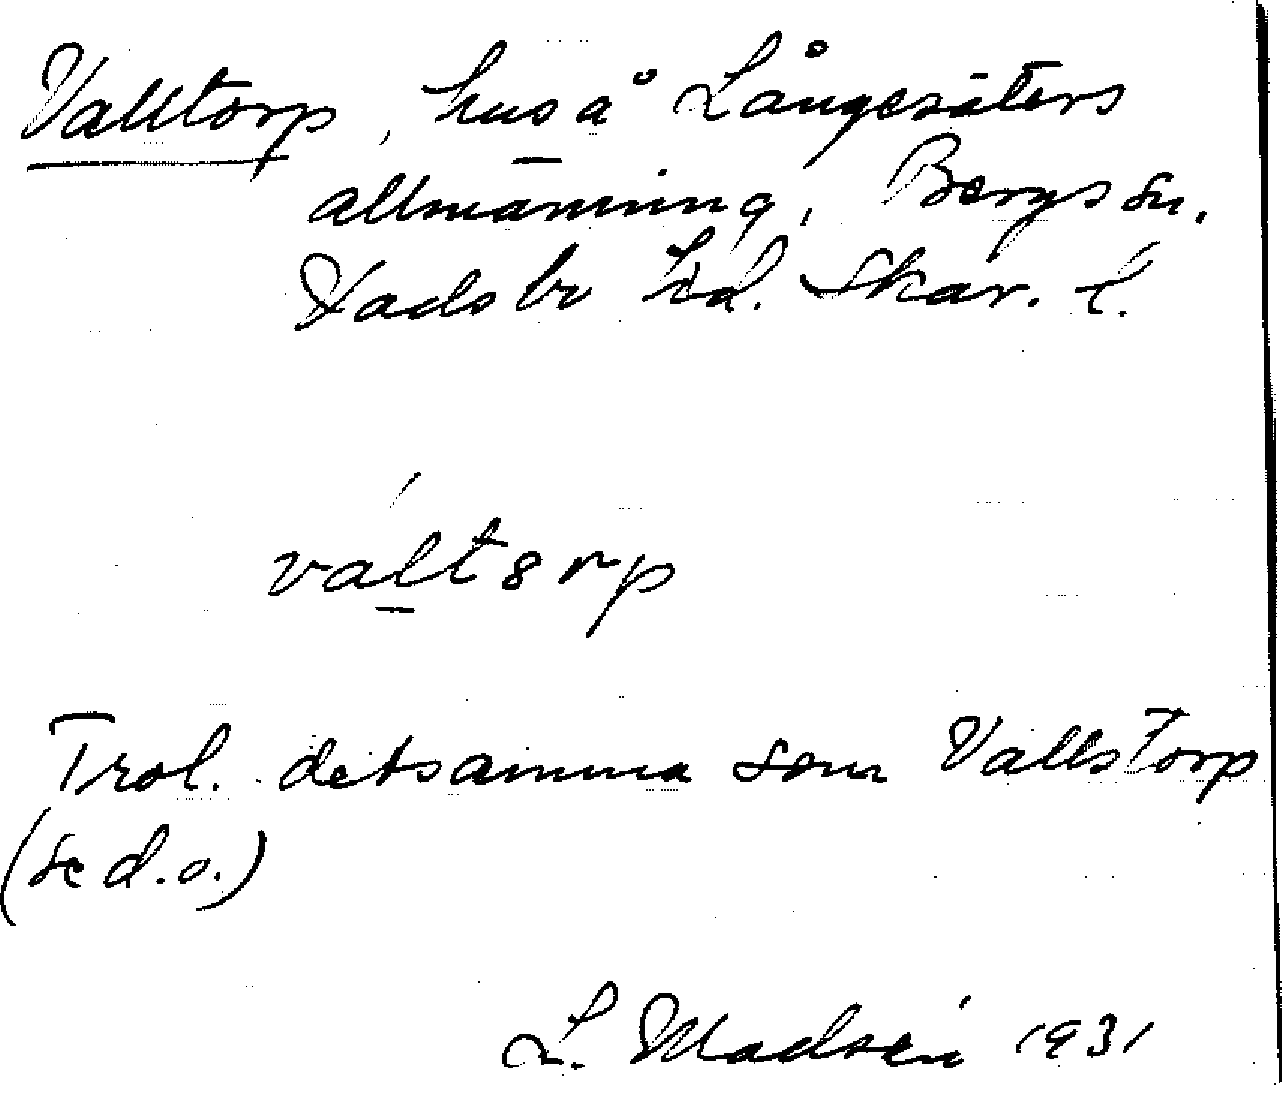 Valltorp, hus å Långesäters
allmänning, Bergs sn,
Vadsbo hd. Skar. l.
váltorp
Trol. detsamma som Vallstorp
(se d.o.)
L. Madsén 1931